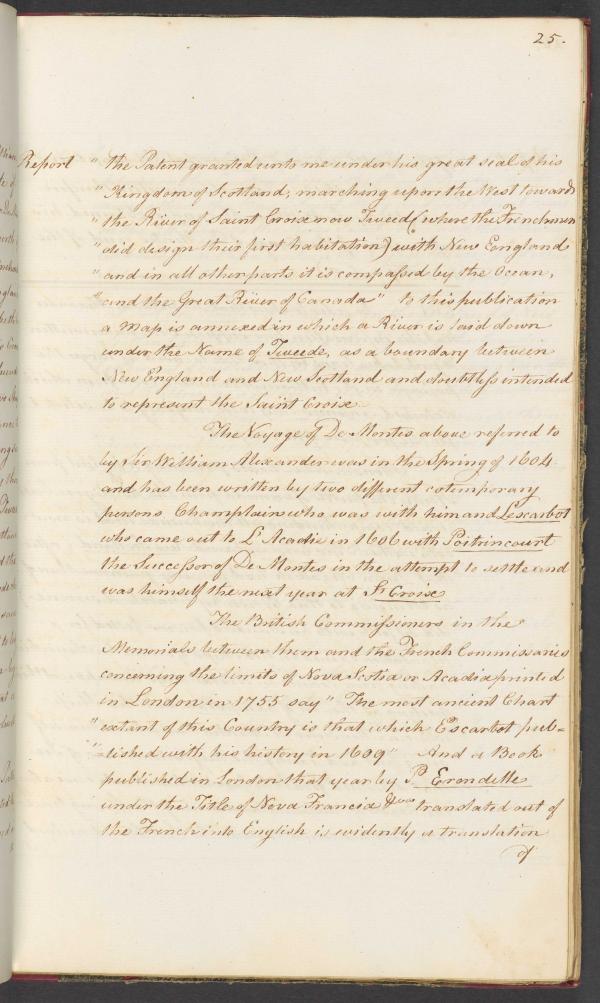 25.
Report " the Patent granted unto me under his great seal of his
" Kingdom of Scotland, marching upon the West towards
" the River of Saint Croix now Tweed (where the Frenchmen
" did design their first habitation) with New England
" and in all other parts it is compassed by the Ocean,
" and the Great River of Canada" to this publication
a Map is annexed in which a River is laid down
under the Name of Tweede, as a boundary between
New England and New Scotland and doubtless intended
to represent the Saint Croix
The Voyage of De Montes above referred to
by Sir William Alexander was in the Spring of 1604
and has been written by two different cotemporary
persons Champlain who was with him and Lescarbot
who came out to L'Acadie in 1606 with Poitrincourt
the Successor of De Montes in the attempt to settle and
was himself the next year at St Croix
The British Commissioners in the
Memorials between them and the French Commissaries
concerning the limits of Nova Scotia or Acadia printed
in London in 1755 say " The most ancient Chart
" extant of this Country is that which Escarbot pub=
" =lished with his history in 1609" And a Book
published in London that year by P. Erondelle
under the Title of Nova Francia &ca translated out of
the French into English is evidently a translation
of